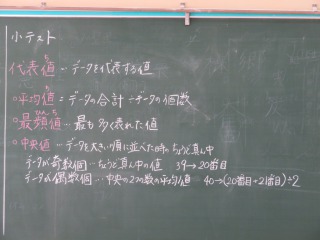 小テスト
代表値…データを代表する値
○平均値=データの合計÷データの個数
○最頻値…最も多く表れた値
○中央値…データを大きい順に並べた時のちょうど真ん中
データが奇数個…ちょうど真ん中の値 39→20番目
データが偶数個…中央の2つの数の平均値 40→(20番目+21番目)÷2